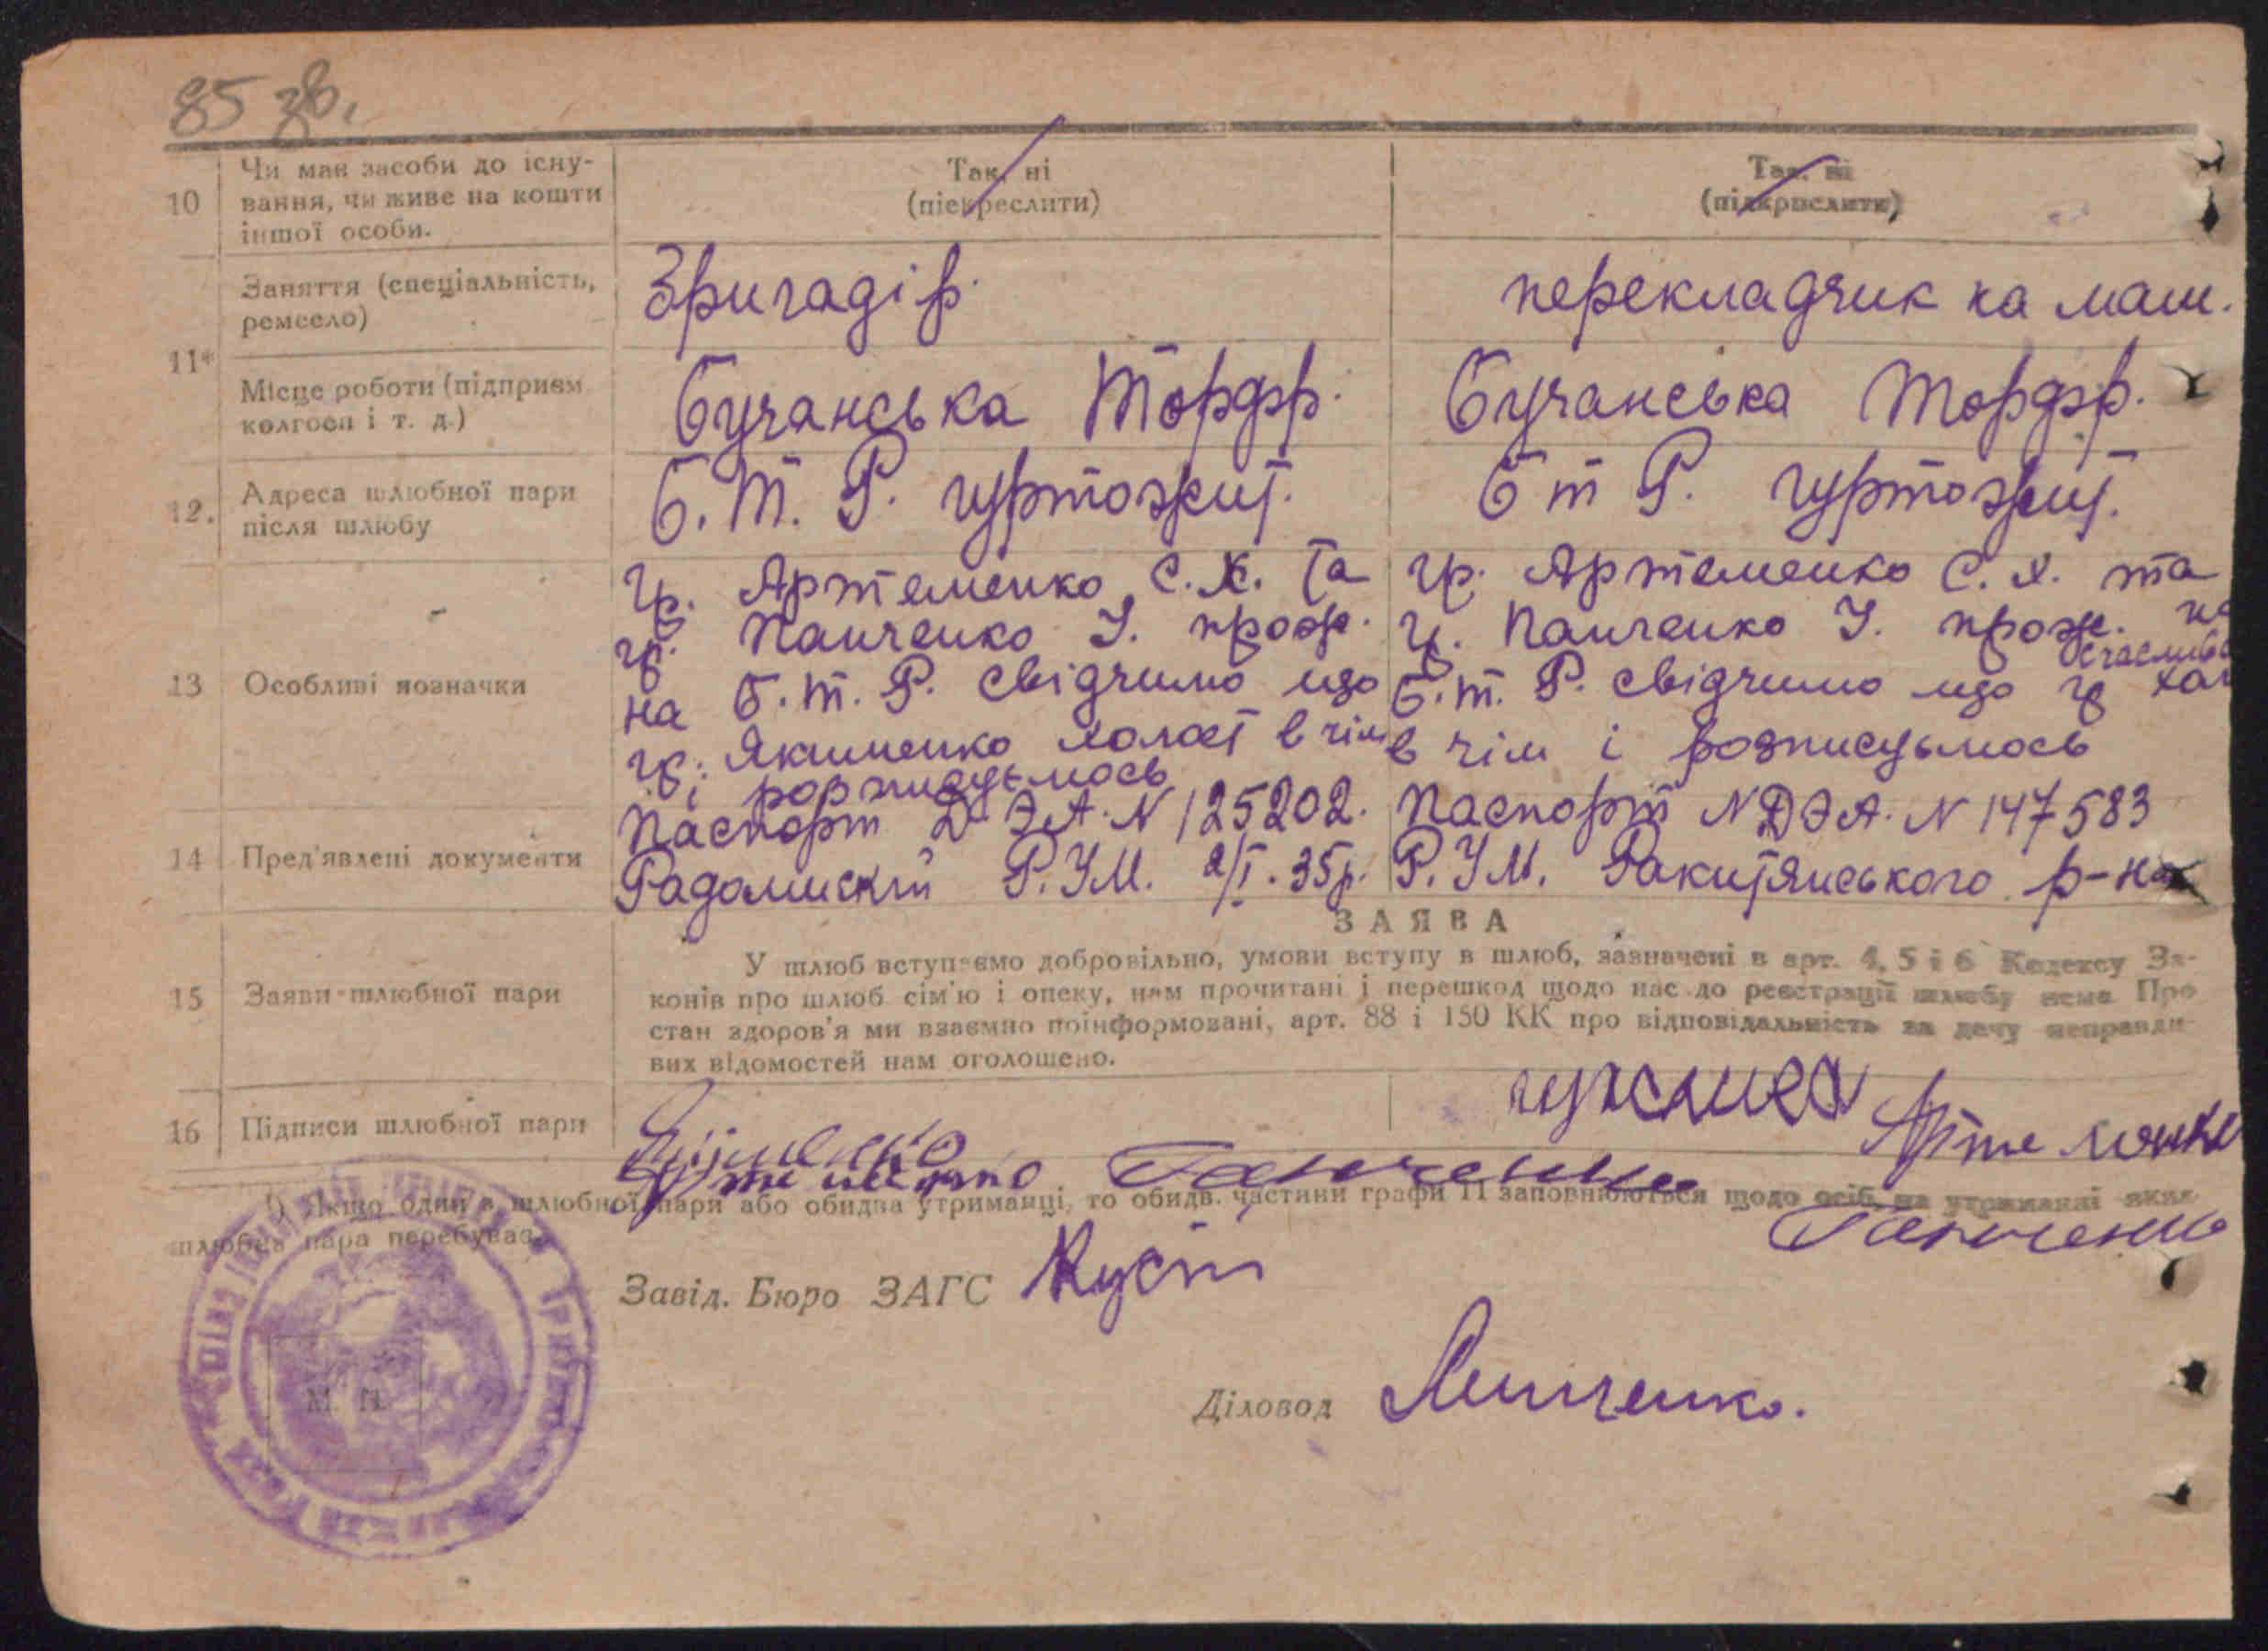 85 зв.
10
Чи має засоби до існу-
вання, чи живе на кошти
іншої особи.
Так, ні
(піекреслити)
Так, ні
(підкреслити)
11*
Заняття (спеціальність,
ремесело)
Бригадір.
перекладчик на маш.
Місце роботи (підприєм
колгосп і т. д.)
Бучанська Торфр.
Бучанська Торфр.
12.
Адреса шлюбної пари
після шлюбу
Б. Т. Р. гуртожит.
Б Т Р. гуртожит.
13
Особливі позначки
гр. Артеменко С. Х. та
гр. Панченко У. прож.
на Б. Т. Р. свідчимо що
гр. Якименко холост в чім
і розписуємось
гр. Артеменко С. Х. та
гр. Панченко У. прож. на
Б. Т. Р. свідчимо що гр
в чім і розписуємось
14
Пред'явлені документи
Паспорт Д ЭА. N 125202.
Радомискій Р.У.М. 2/I. 35р.
Паспорт N ДЭА. N 147583
Р.У.М. Ракитянського р-на
15
Заяви шлюбної пари
ЗАЯВА
У шлюб вступаємо добровільно, умови вступу в шлюб, зазначені в арт. 4, 5 і 6 Кодексу За-
конів про шлюб сім'ю і опеку, нам прочитані і перешкод щодо нас до реєстрації шлюбу нема Про
стан здоров'я ми взаємно поінформовані, арт. 88 і 150 КК про відповідальність за дачу неправди-
вих відомостей нам оголошено.
16
Підписи шлюбної пари
Якименко
Артеменко Панченко
Артеменко
Панченко
¹) Якщо один з шлюбної пари або обидва утриманці, то обидв. частини графи 11 заповнюються щодо осіб, на утриманні яких
шлюбна пара перебуває.
Завід. Бюро ЗАГС Куст
М. П.
Діловод Минченко.